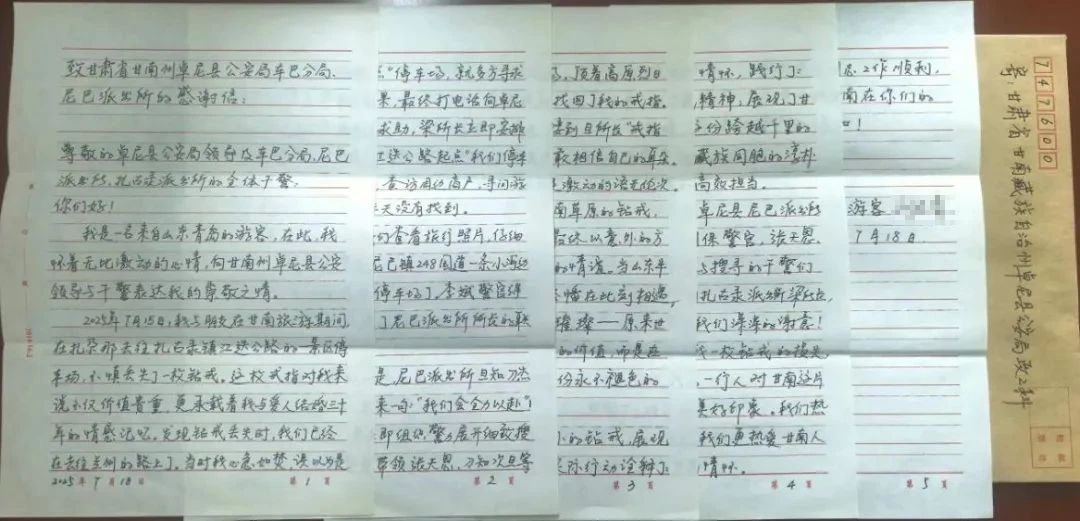 致甘肃省甘南州卓尼县公安局车巴分局、
尼巴派出所的感谢信:
尊敬的卓尼县公安局领导及车巴分局、尼巴
派出所、扎古录派出所的全体干警,
你们好!
我是一名来自山东青岛的游客,在此,我
怀着无比激动的心情,向甘南州卓尼县公安
领导与干警表达我的崇敬之情。
2025年7月15日,我与朋友在甘南旅游期间
在扎尕那去往扎古录镇江迭公路的一景区停
车场,不慎丢失了一枚钻戒。这枚戒指对我来
说不仅价值贵重,更承载着我与爱人结婚三十
年的情感记忆。发现钻戒丢失时,我们已经
在去往兰州的路上了。当时我心急如焚,误以为是
2025年7月18日
第 1 页
点“停车场,就多方寻求
果,最终打电话向卓尼
求助,梁所长立即安排
江迭公路起点“我们停车
查访周边商户,寻问游
天没有找到。
们查看旅行照片,仔细
尼巴镇248国道一条小河边
停车场了。李斌警官
了尼巴派出所所长的联
是尼巴派出所旦知刀杰
来一句“我们会全力以赴”!
即组织警力展开细致搜
带领张天恩、刀知次旦等
第 2 页
场,顶着高原烈日
找回了我的戒指。
到旦所长“戒指
敢相信自己的耳朵。
激动的语无伦次。
南草原的钻戒,
给终以意外的方
的情谊。当山东半
幡在此刻相遇,
璀璨——原来世
的价值,而是在
份永不褪色的
小的钻戒,展现
实际行动诠释了
第 3 页
情怀,践行了
精神,展现了甘
份跨越千里的
藏族同胞的淳朴
高效担当。
卓尼县尼巴派出所
保警官,张天恩、
与搜寻的干警们
扎古录派出所梁所长,
我们深深的谢意!
我一枚钻戒的损失
一行人对甘南这片
美好印象。我们热
我们更热爱甘南人
情怀。
第 4 页
工作顺利,
南在你们的
!
游客
7月18日
第 5 页
747600
寄:甘肃省甘南藏族自治州卓尼县公安局政工科